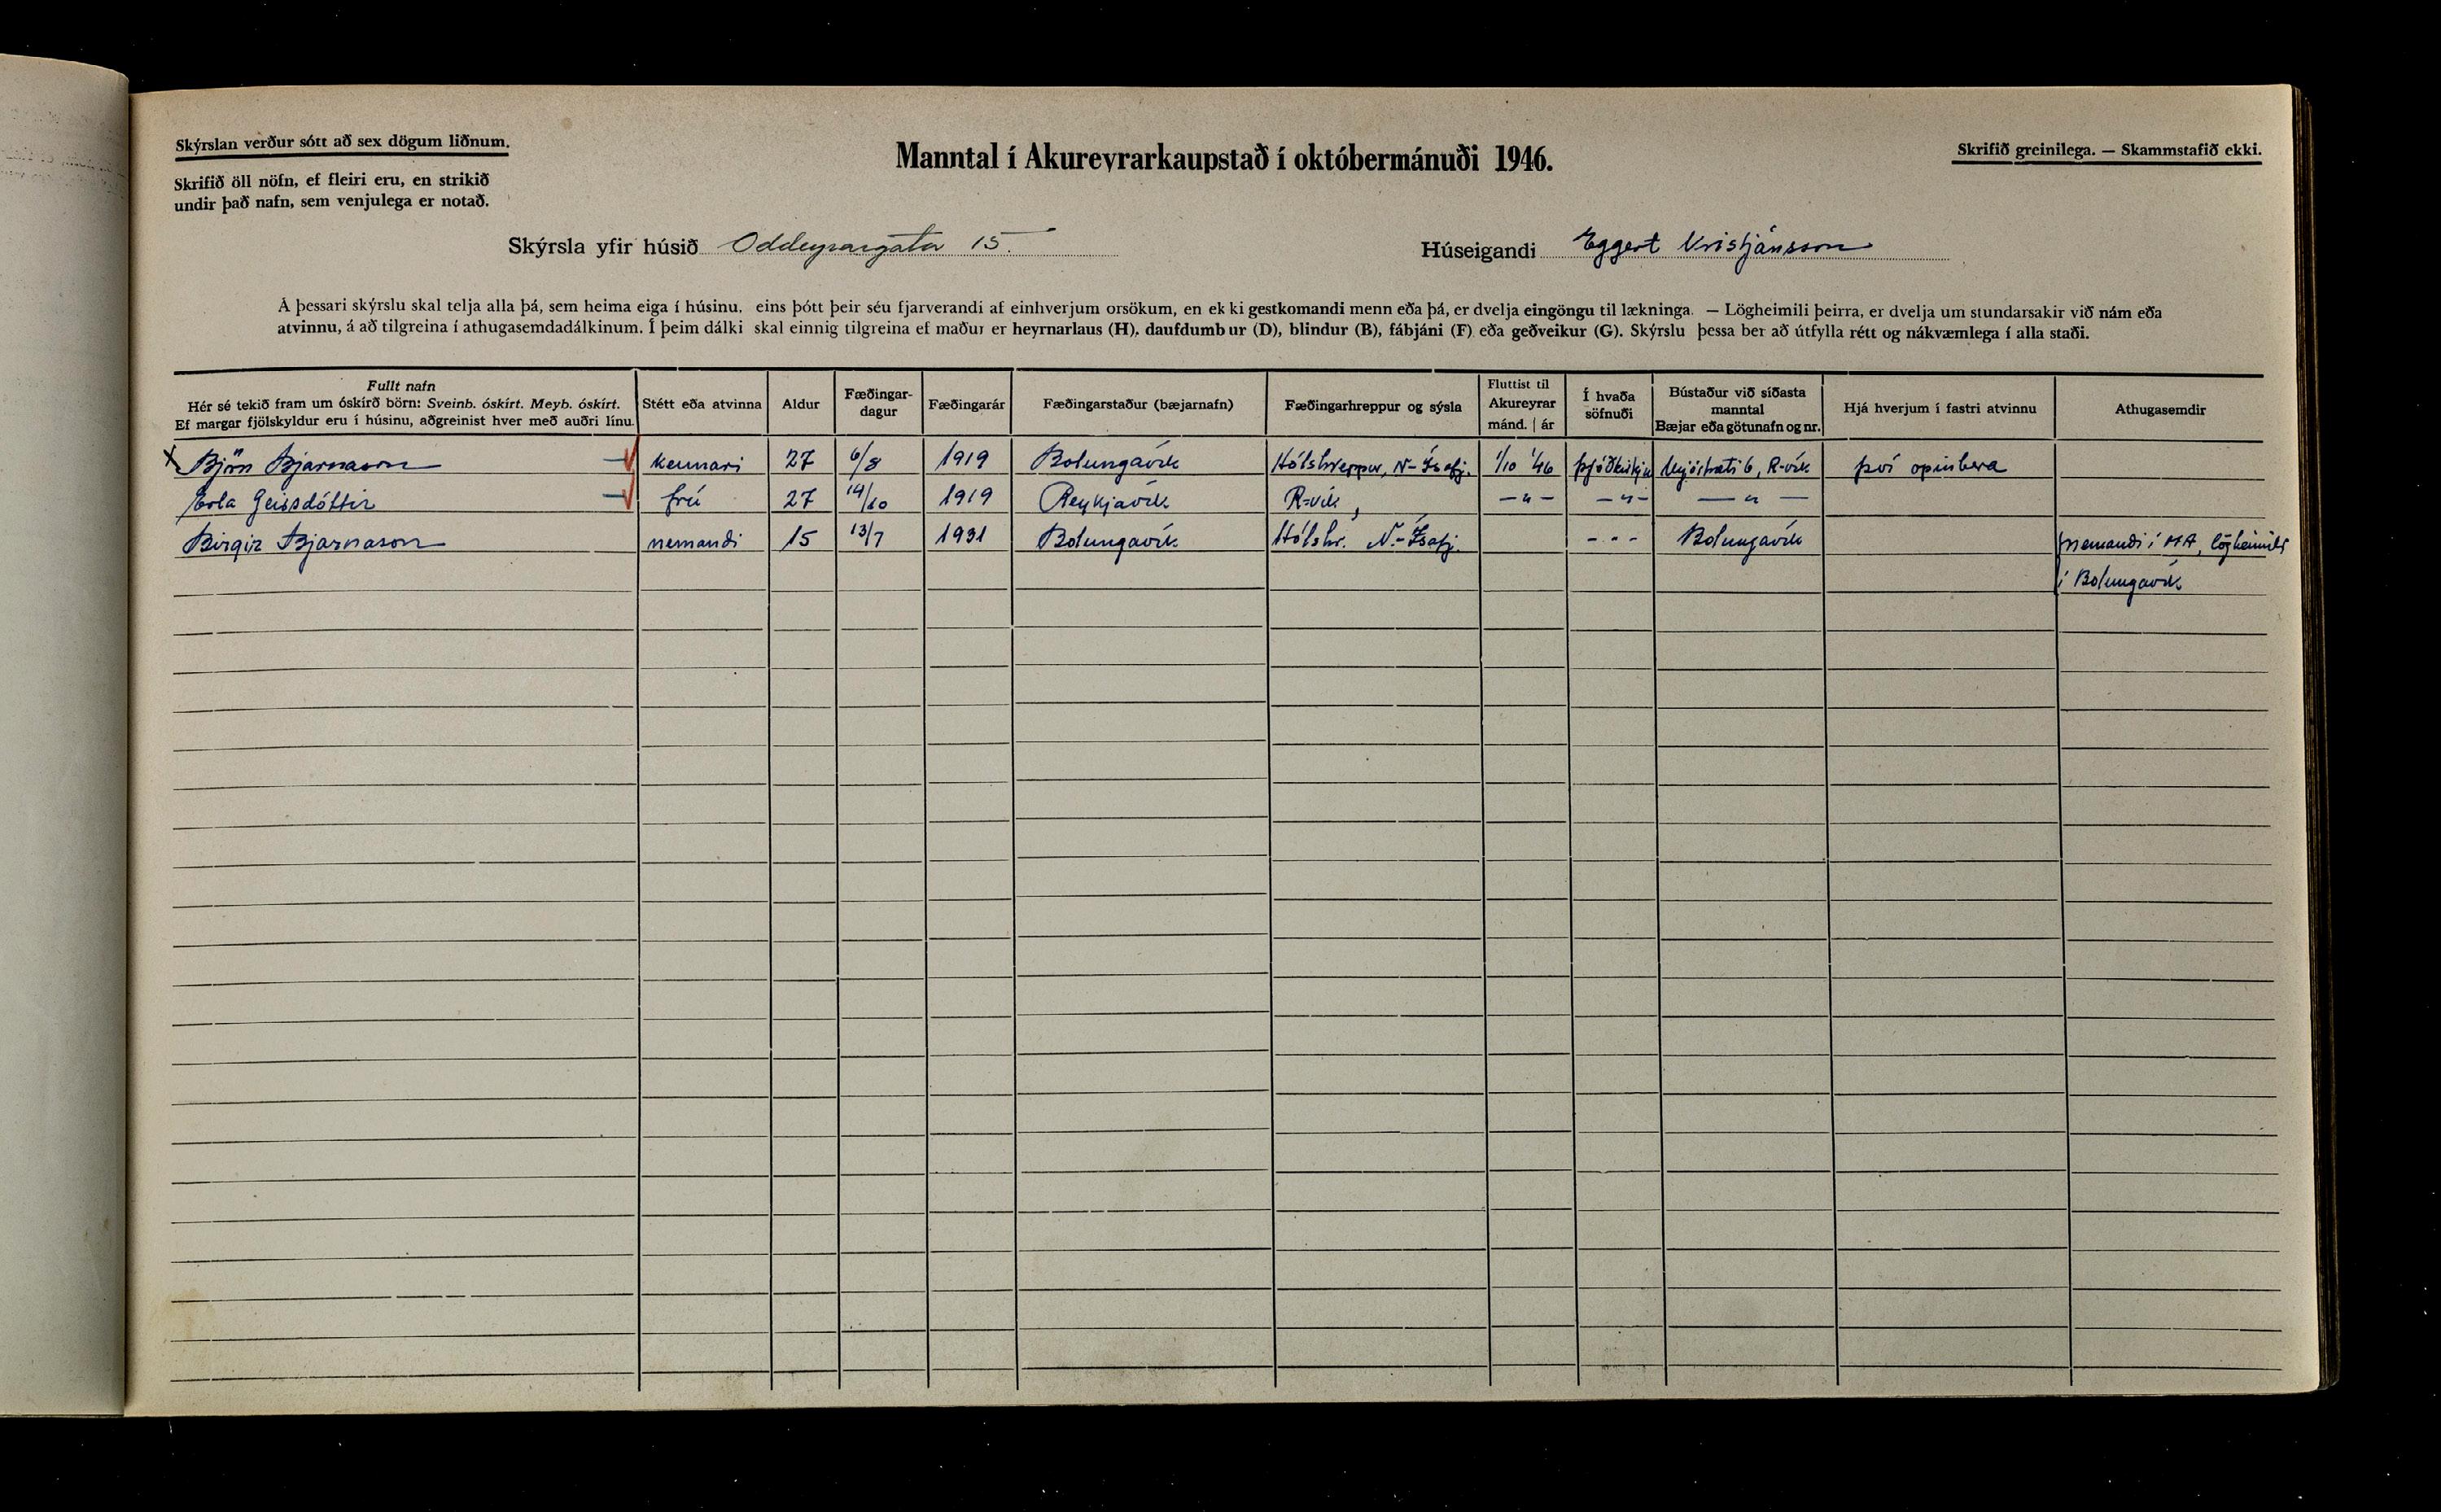 Skýrslan verður sótt að sex dögum liðnum.
Skrifið öll nöfn, ef fleiri eru, en strikið
undir það nafn, sem venjulega er notað.
Manntal í Akureyrarkaupstað í októbermánuði 1946.
Skrifið greinilega. — Skammstafið ekki.
Skýrsla yfir húsið Oddeyrargata 15.
Húseigandi Eggert Kristjánsson
Á þessari skýrslu skal telja alla þá, sem heima eiga í húsinu, eins þótt þeir séu fjarverandi af einhverjum orsökum, en ekki gestkomandi menn eða þá, er dvelja eingöngu til lækninga. — Lögheimili þeirra, er dvelja um stundarsakir við nám eða
atvinnu, á að tilgreina í athugasemdadálkinum. Í þeim dálki skal einnig tilgreina ef maður er heyrnarlaus (H), daufdumbur (D), blindur (B), fábjáni (F) eða geðveikur (G). Skýrslu þessa ber að útfylla rétt og nákvæmlega í alla staði.
Fullt nafn
Hér sé tekið fram um óskírð börn: Sveinb. óskírt. Meyb. óskírt.
Ef margar fjölskyldur eru í húsinu, aðgreinist hver með auðri línu.
Stétt eða atvinna
Aldur
Fæðingar-
dagur
Fæðingarár
Fæðingarstaður (bæjarnafn)
Fæðingarhreppur og sýsla
Fluttist til
Akureyrar
mánd. | ár
Í hvaða
söfnuði
Bústaður við síðasta
manntal
Bæjar eða götunafn og nr.
Hjá hverjum í fastri atvinnu
Athugasemdir
x Björn Bjarnason kennari 27 6/8 1919 Bolungavík Hólshreppur, N-Ísafj. 1/10 '46 þjóðkirkju Mjóstræti 6, R-vík því opinbera
Erla Geirsdóttir frú 27 14/10 1919 Reykjavík R-vík, —"— —"— —"—
Birgir Bjarnason nemandi 15 13/7 1931 Bolungavík Hólshr. N.-Ísafj. - " - Bolungavík nemandi í MA, lögheimili
í Bolungavík